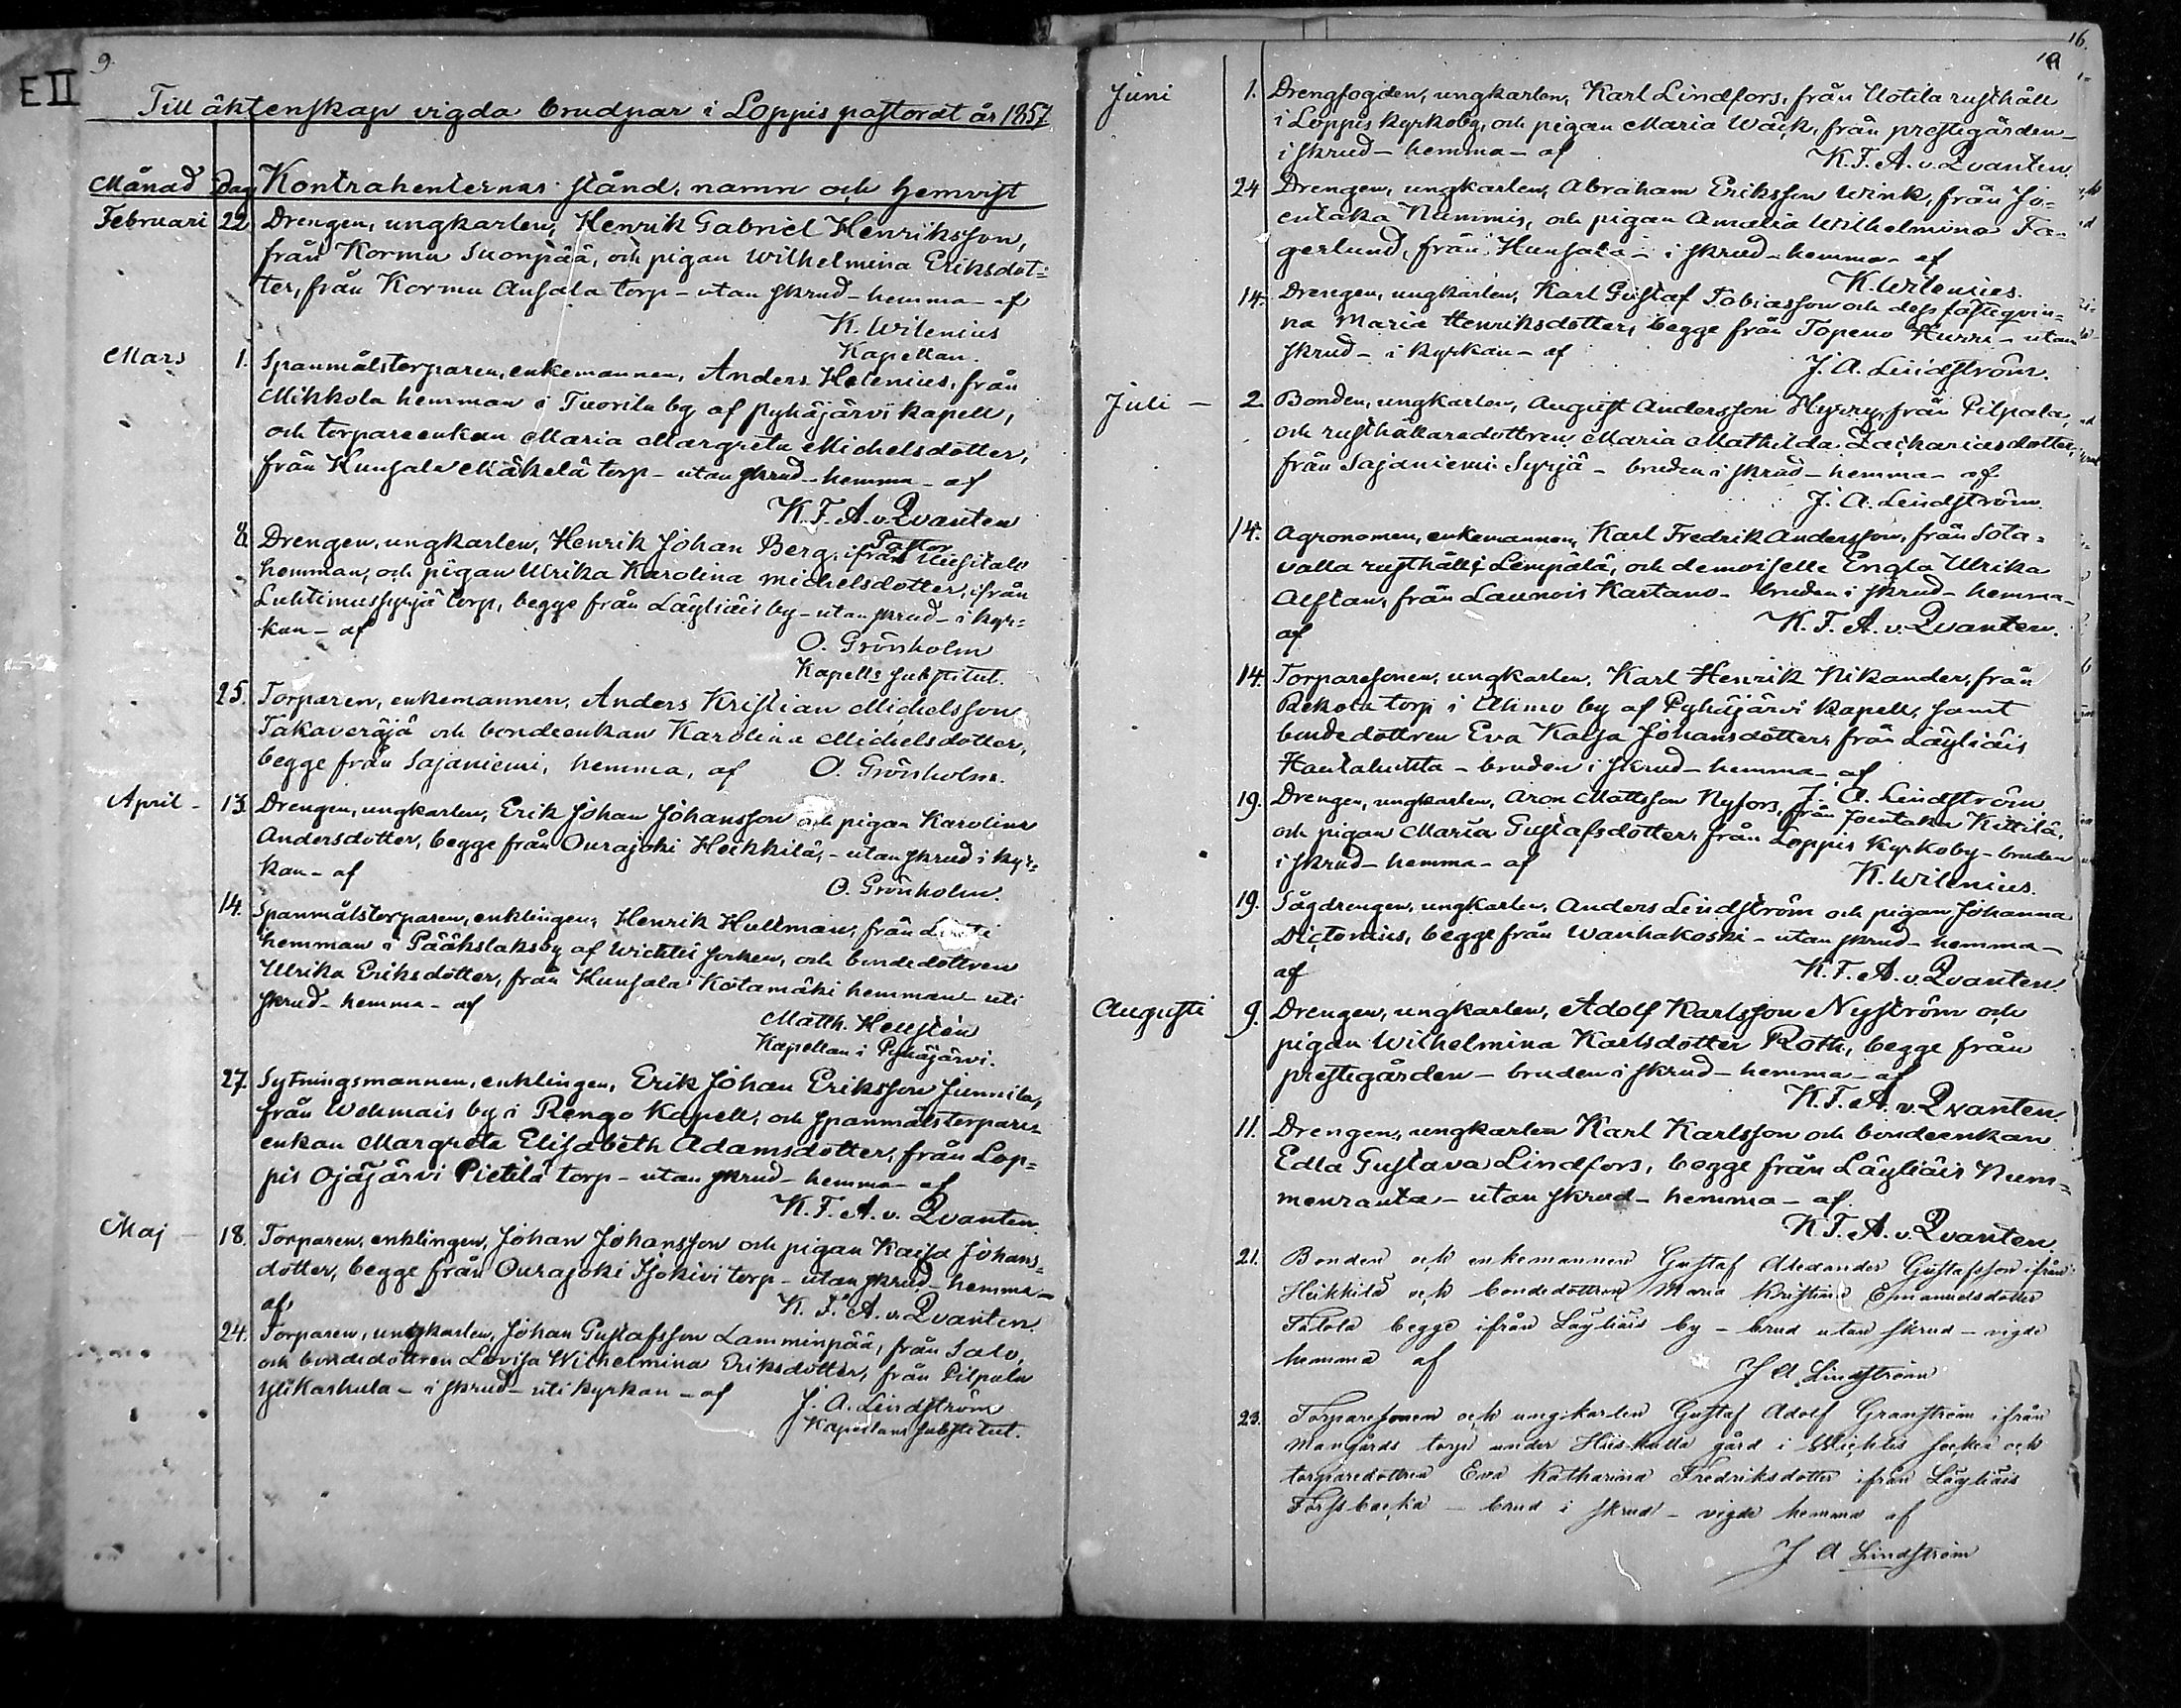 9.
E II
Till äktenskap vigda brudpar i Loppis pastorat år 1857.
Månad Dag Kontrahenternas stånd, namn och hemvist
Februari 22 Drengen, ungkarlen, Henrik Gabriel Henriksson,
från Kormu Suonpää, och pigan Wilhelmina Eriksdot=
ter, från Kormu Ansala torp - utan skrud - hemma - af
K. Wilenius
Kapellan.
Mars 1. Spanmålstorparen, enkemannen, Anders Helenius, från
Mikkola hemman i Tuorila by af Pyhäjärvi kapell,
och torpareenkan Maria Margreta Michelsdotter,
från Kunsala Mäkelä torp - utan skrud - hemma - af
K. F. A. v. Qvanten
Pastor
8. Drengen, ungkarlen, Henrik Johan Berg, ifrån Uusitalo
hemman, och pigan Ulrika Karolina Michelsdotter, ifrån
torp, begge från Läyliäis by - utan skrud - i kyr=
kan - af
O. Grönholm
Kapells substitut.
25. Torparen, enkemannen, Anders Kristian Michelsson
Takaveräjä och bondeenkan Karolina Michelsdotter,
begge från Sajaniemi, hemma, af O. Grönholm.
April - 13. Drengen, ungkarlen, Erik Johan Johansson och pigan Karolina
Andersdotter, begge från Ourajoki Heikkilä, - utan skrud i kyr=
kan - af
O. Grönholm.
14. Spanmålstorparen, enklingen, Henrik Hullman, från
hemman i Pääkslaks by af Wichtis socken, och bondedottren
Ulrika Eriksdotter, från Kunsala Kotamäki hemman - uti
skrud - hemma - af
Matth. Hellstén
Kapellan i Pyhäjärvi.
27. Sytningsmannen, enklingen, Erik Johan Eriksson Junnila,
från Wehmais by i Rengo Kapell, och spanmålstorpare=
enkan Margreta Elisabeth Adamsdotter, från Lop=
pis Ojajärvi Pietilä torp - utan skrud - hemma - af
K. F. A. v. Qvanten.
Maj - 18. Torparen, enklingen, Johan Johansson och pigan Kaisa Johans=
dotter, begge från Ourajoki torp - utan skrud - hemma -
af
K. F. A. v. Qvanten.
24. Torparen, ungkarlen, Johan Gustafsson Lamminpää, från Salo,
och bondedottren Lovisa Wilhelmina Eriksdotter, från Pilpala
Ylikarhula - i skrud - uti kyrkan - af J. A. Lindström
Kapellans substitut.
16.
Juni 1. Drengfogden, ungkarlen, Karl Lindfors, från Uotila rusthåll
i Loppis kyrkoby, och pigan Maria Wäck, från prestegården -
i skrud - hemma - af K. F. A. v. Qvanten.
24 Drengen, ungkarlen, Abraham Eriksson Wink, från Jo=
entaka Nummis, och pigan Amalia Wilhelmina Fa=
gerlund, från Hunsala - i skrud - hemma - af
K. Wilenius.
14. Drengen, ungkarlen, Karl Gustaf Tobiasson och dess fästeqvin=
na Maria Henriksdotter, begge från Topeno Hurri - utan
skrud - i kyrkan - af
J. A. Lindström.
Juli - 2 Bonden, ungkarlen, August Andersson Hyrry, från Pilpala,
och rusthållaredottren Maria Mathilda Zachariasdotter,
från Sajaniemi Syrjä - bruden i skrud - hemma - af
J. A. Lindström.
14. Agronomen, enkemannen, Karl Fredrik Andersson, från Sota=
valla rusthåll i Lempälä, och demoiselle Engla Ulrika
Alfstan, från Launois Kartano - bruden i skrud - hemma -
af K. F. A. v. Qvanten.
14. Torparesonen, ungkarlen, Karl Henrik Nikander, från
Rekola torp i Ahmo by af Pyhäjärvi kapell, samt
bondedottren Eva Kajsa Johansdotter, från Läyliäis
- bruden i skrud - hemma - af
J. A. Lindström
19. Drengen, ungkarlen, Aron Mattsson Nyfors, från Joentaka Kittilä,
och pigan Maria Gustafsdotter, från Loppis Kyrkoby - bruden
i skrud - hemma - af
K. Wilenius.
19. Sågdrengen, ungkarlen, Anders Lindström och pigan Johanna
Dictonius, begge från Wanhakoski - utan skrud - hemma -
af K. F. A. v. Qvanten.
Augusti 9. Drengen, ungkarlen, Adolf Karlsson Nyström och
pigan Wilhelmina Karlsdotter Roth, begge från
prestegården - bruden i skrud - hemma - af
K. F. A. v. Qvanten.
11. Drengen, ungkarlen Karl Karlsson och bondeenkan
Edla Gustava Lindfors, begge från Läyliäis Num=
menranta - utan skrud - hemma - af
K. F. A. v. Qvanten.
21. Bonden och enkemannen Gustaf Alexander Gustafsson ifrån
Heikkilä och bondedottren Maria Kristina Emanuelsdotter
Talola begge ifrån Läyliäis by - brud utan skrud - vigde
hemma af
J A Lindström
23. Torparesonen och ungkarlen Gustaf Adolf Granström ifrån
Mangårds torp under Hiiskulla gård i Wichtis socken och
torparedottren Eva Katharina Fredriksdotter ifrån Läyliäis
Forssbacka - brud i skrud - vigde hemma af
J A Lindström